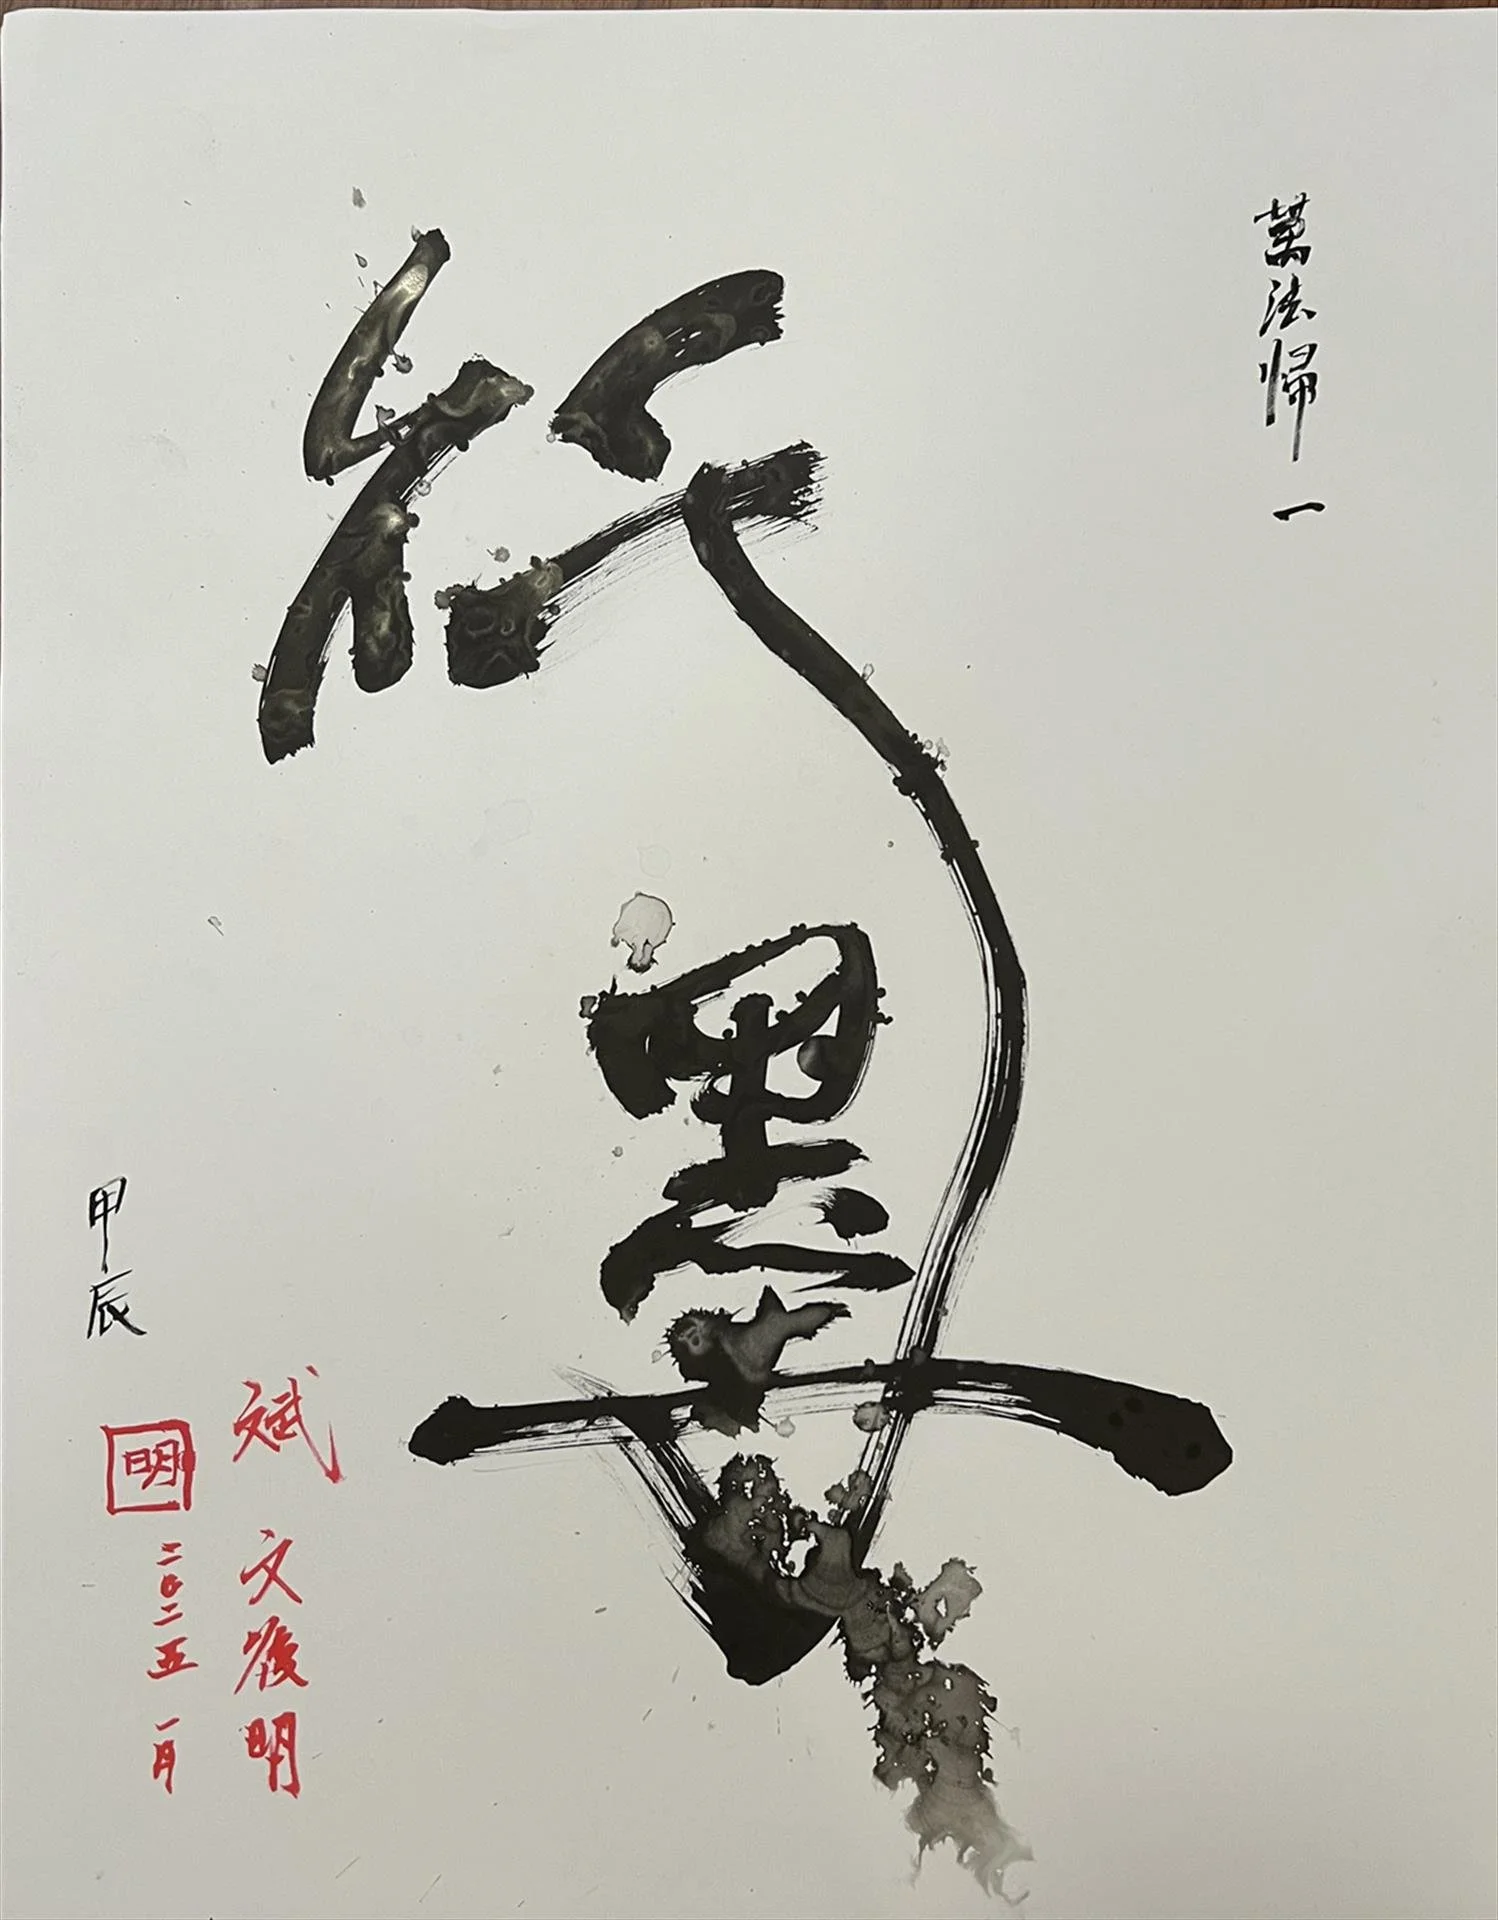 萬法歸一
行墨
甲辰
斌 文後明
明
二〇二五 一月